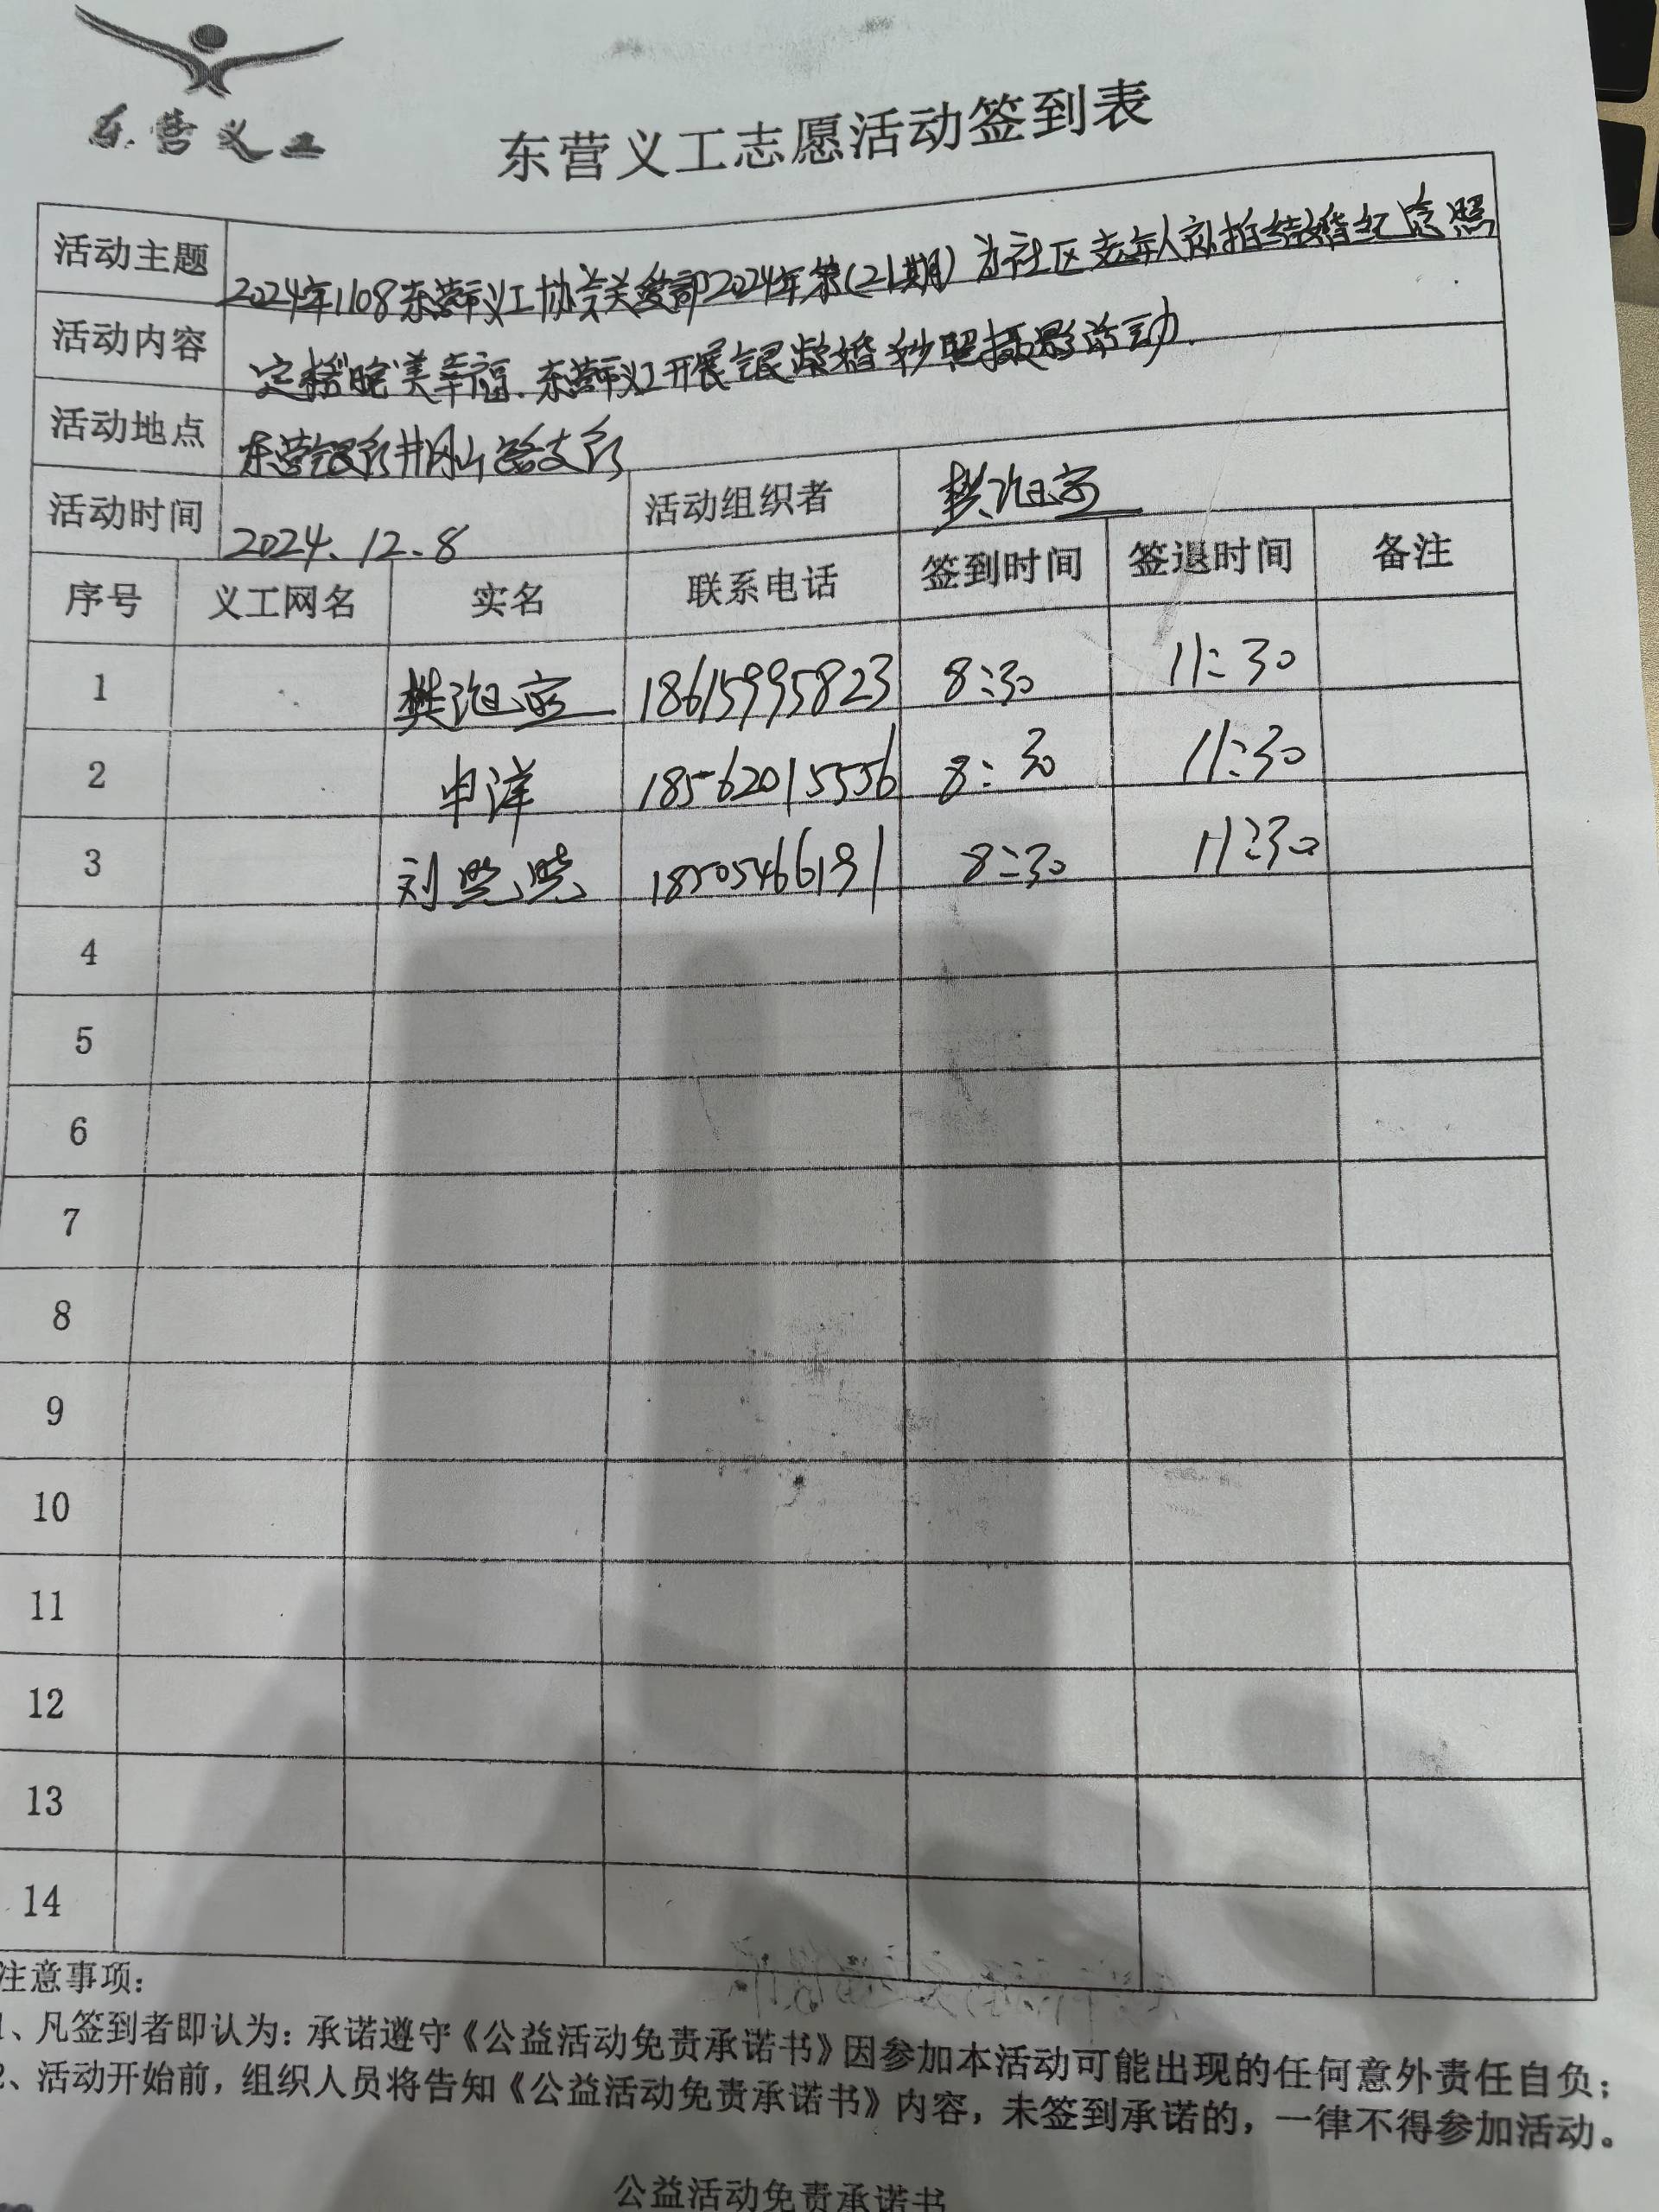 东营义工
东营义工志愿活动签到表
活动主题 2024年1108东营市义工协会关爱部2024年第(21期)为社区老年人补拍结婚纪念照
活动内容 定格晚美幸福.东营市义工开展金民婚纱照摄影活动.
活动地点 东营银行井冈山路支行
活动时间 2024.12.8 活动组织者 樊
序号 义工网名 实名 联系电话 签到时间 签退时间 备注
1 樊 18615995823 8:30 11:30
2 申洋 18562015556 8:30 11:30
3 刘 18505466191 8:30 11:30
4
5
6
7
8
9
10
11
12
13
14
注意事项:
1、凡签到者即认为:承诺遵守《公益活动免责承诺书》因参加本活动可能出现的任何意外责任自负;
2、活动开始前,组织人员将告知《公益活动免责承诺书》内容,未签到承诺的,一律不得参加活动。
公益活动免责承诺书